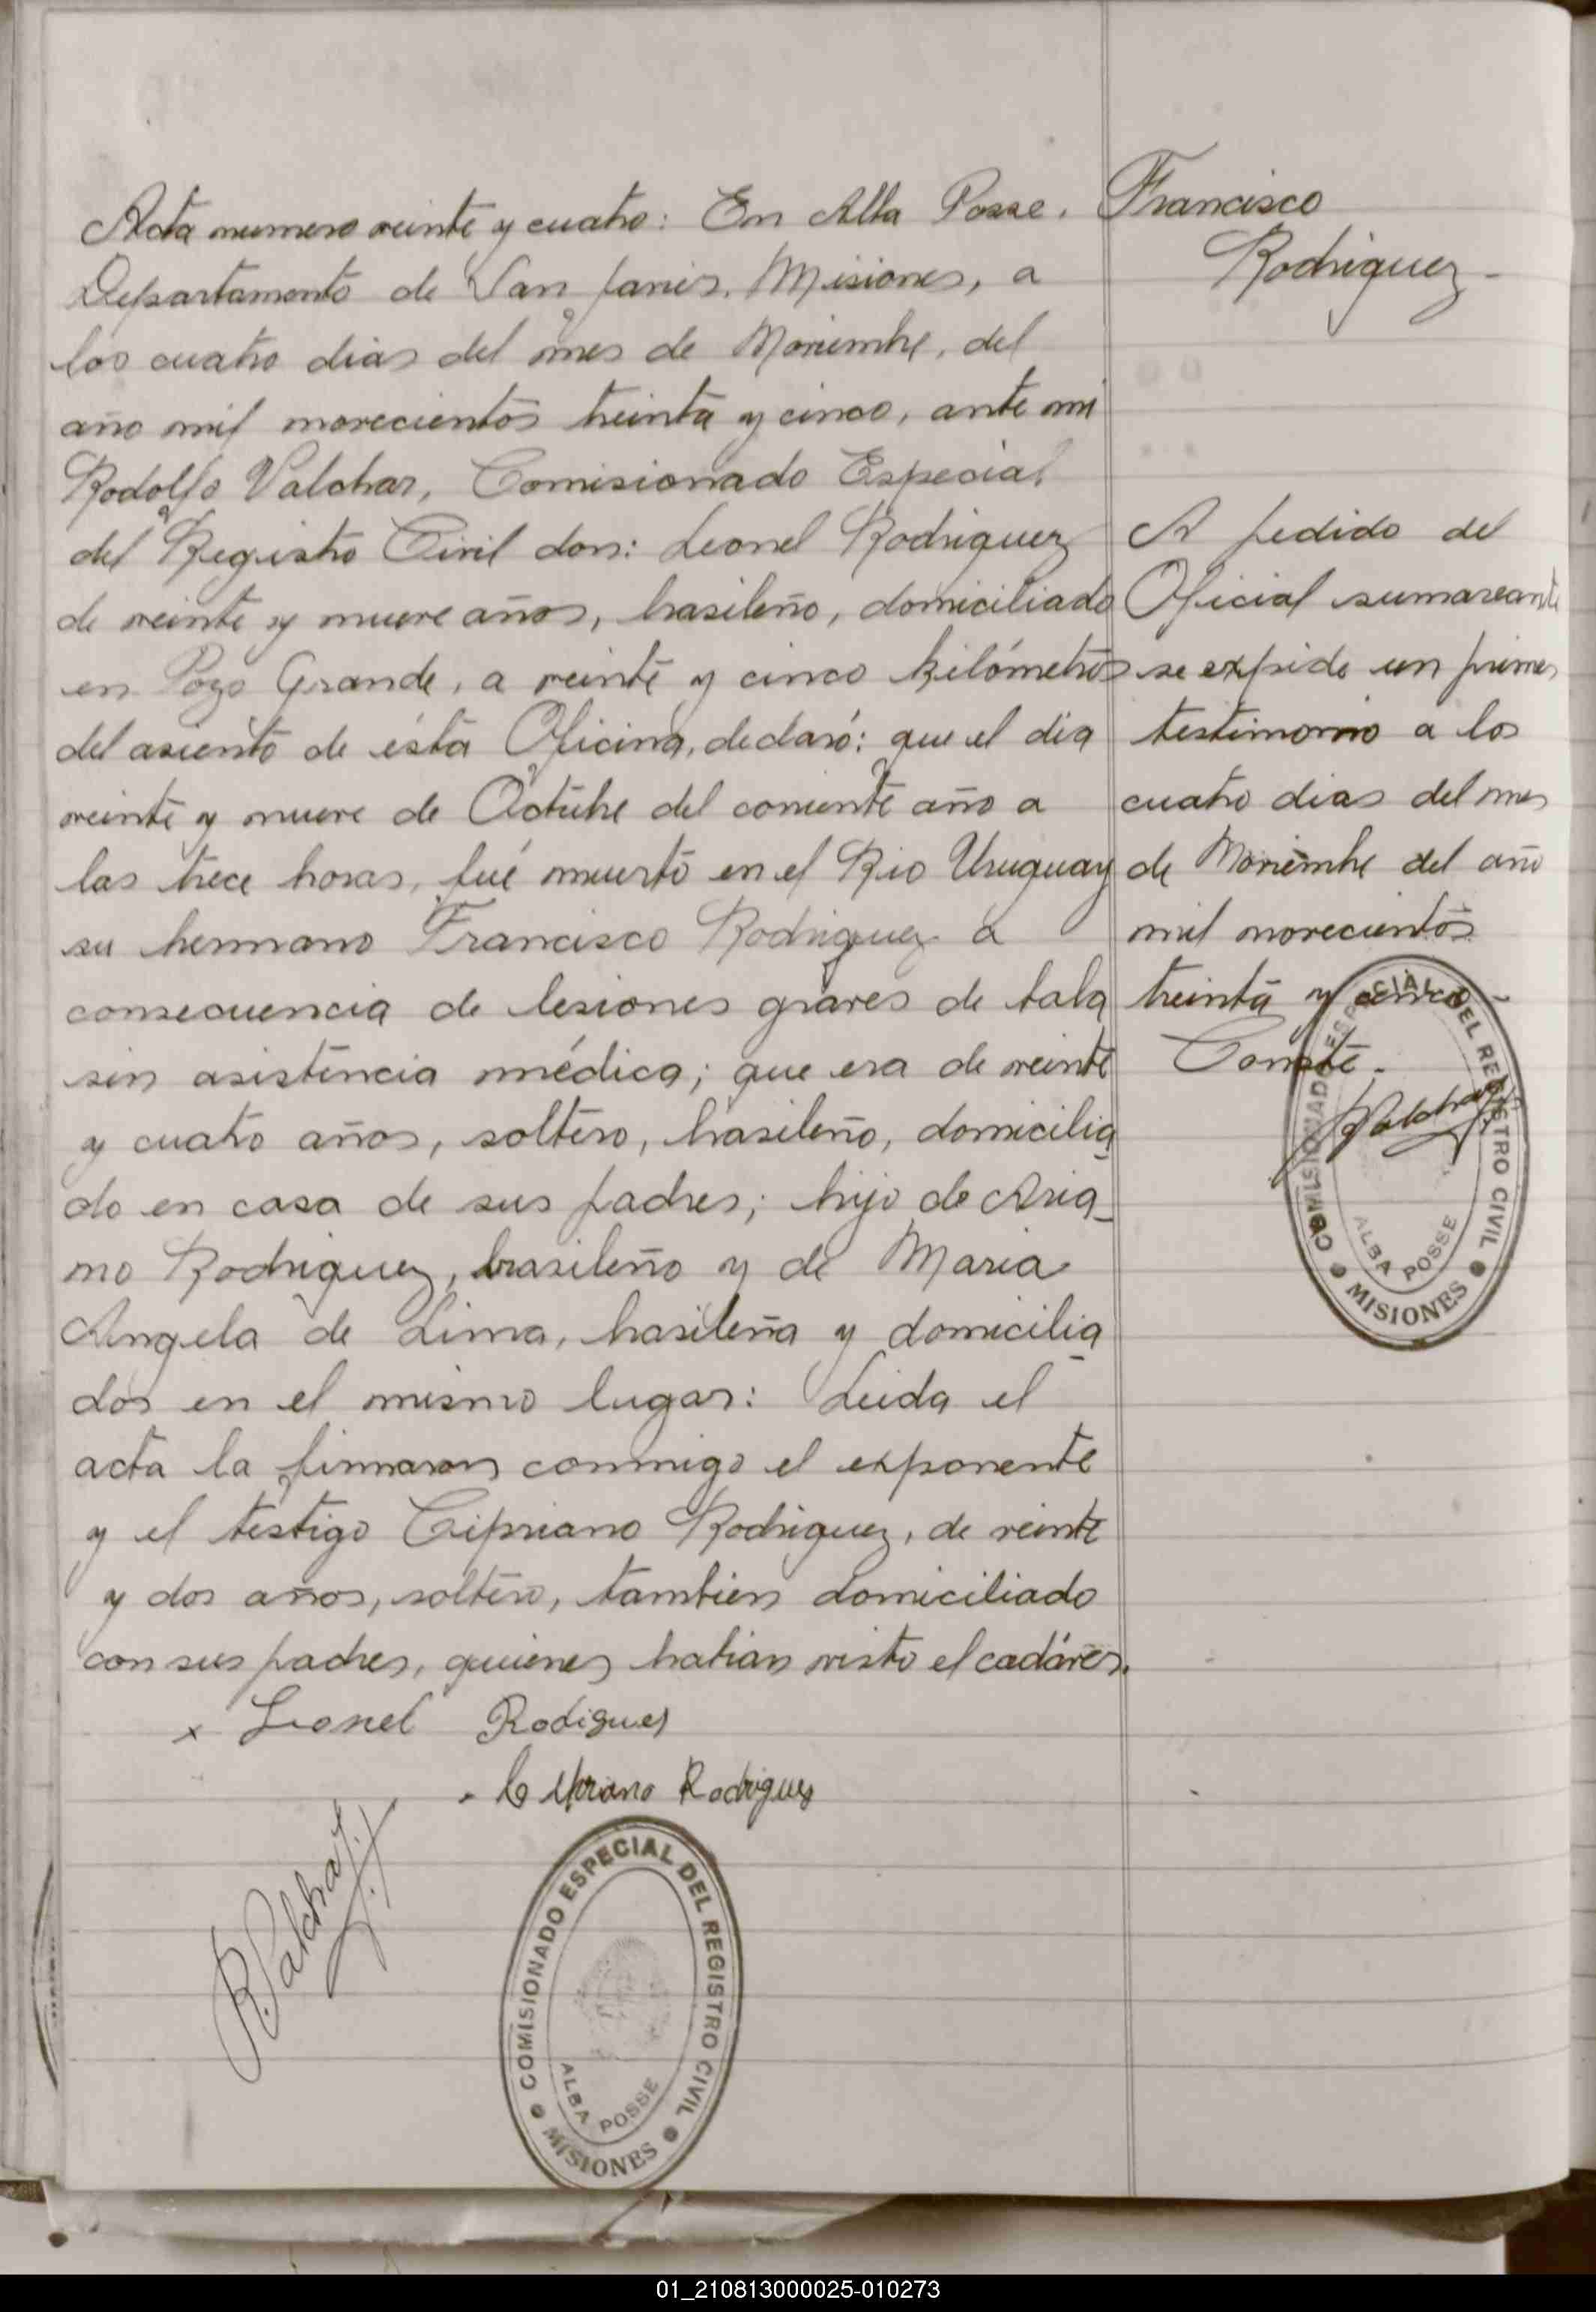 Acta numero veinte y cuatro: En Alba Posse,
Departamento de San Javier, Misiones, a
los cuatro dias del mes de Noviembre, del
año mil novecientos treinta y cinco, ante mi
Rodolfo Valchar, Comisionado Especial
del Registro Civil don: Leonel Rodriguez
de veinte y nueve años, brasileño, domiciliado
en Pozo Grande, a veinte y cinco kilómetros
del asiento de ésta Oficina, declaró: que el dia
veinte y nueve de Octubre del corriente año a
las trece horas, fué muerto en el Rio Uruguay
su hermano Francisco Rodriguez a
consecuencia de lesiones graves de bala
sin asistencia médica; que era de veinte
y cuatro años, soltero, brasileño, domicilia
do en casa de sus padres; hijo de
no Rodriguez, brasileño y de Maria
Angela de Lima, brasileña y domicilia
dos en el mismo lugar: Leida el
acta la firmaron conmigo el exponente
y el testigo Cipriano Rodriguez, de veinte
y dos años, soltero, tambien domiciliado
con sus padres, quienes habian visto el cadáver.
x Leonel Rodigues
Rodrigues
R. Valchar
COMISIONADO ESPECIAL DEL REGISTRO CIVIL
ALBA POSSE
MISIONES
Francisco
Rodriguez-
A pedido del
Oficial sumareante
se expide un primer
testimonio a los
cuatro dias del mes
de Noviembre del año
mil novecientos
treinta y cinco-
Conste.
RValchar
COMISIONADO ESPECIAL DEL REGISTRO CIVIL
ALBA POSSE
MISIONES
01_210813000025-010273